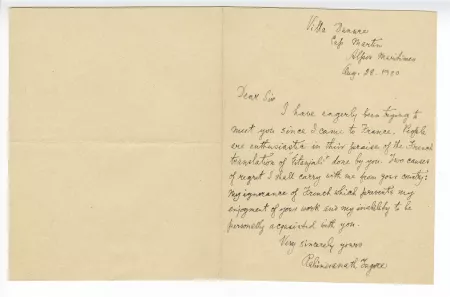 Villa Dunare
Cap Martin
Alpes Maritimes
Aug. 28. 1920
Dear Sir
I have eagerly been trying to
meet you since I came to France. People
are enthusiastic in their praise of the French
translation of "Gitanjali" done by you. Two causes
of regret I shall carry with me from your country:
my ignorance of French which prevents my
enjoyment of your work and my inability to be
personally acquainted with you.
Very sincerely yours
Rabindranath Tagore